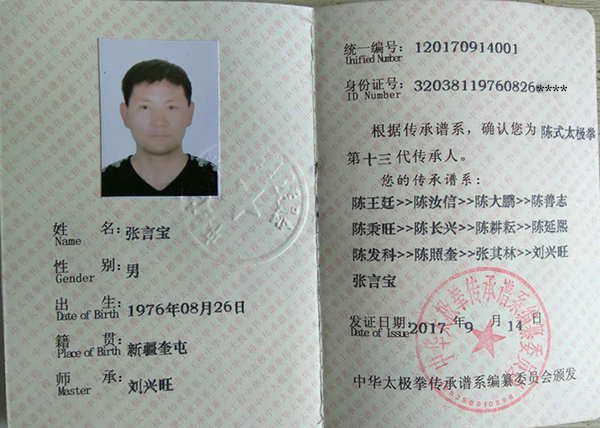 姓 名：张言宝
Name
性 别：男
Gender
出 生：1976年08月26日
Date of Birth
籍 贯：新疆奎屯
Place of Birth
师 承：刘兴旺
Master
统一编号：120170914001
Unified Number
身份证号：32038119760826****
ID Number
根据传承谱系，确认您为陈式太极拳
第十三代传承人。
您的传承谱系：
陈王廷>>陈汝信>>陈大鹏>>陈善志
陈秉旺>>陈长兴>>陈耕耘>>陈延熙
陈发科>>陈照奎>>张其林>>刘兴旺
张言宝
发证日期：2017年9月14日
Date of Issue
中华太极拳传承谱系编纂委员会
中华太极拳传承谱系编纂委员会颁发